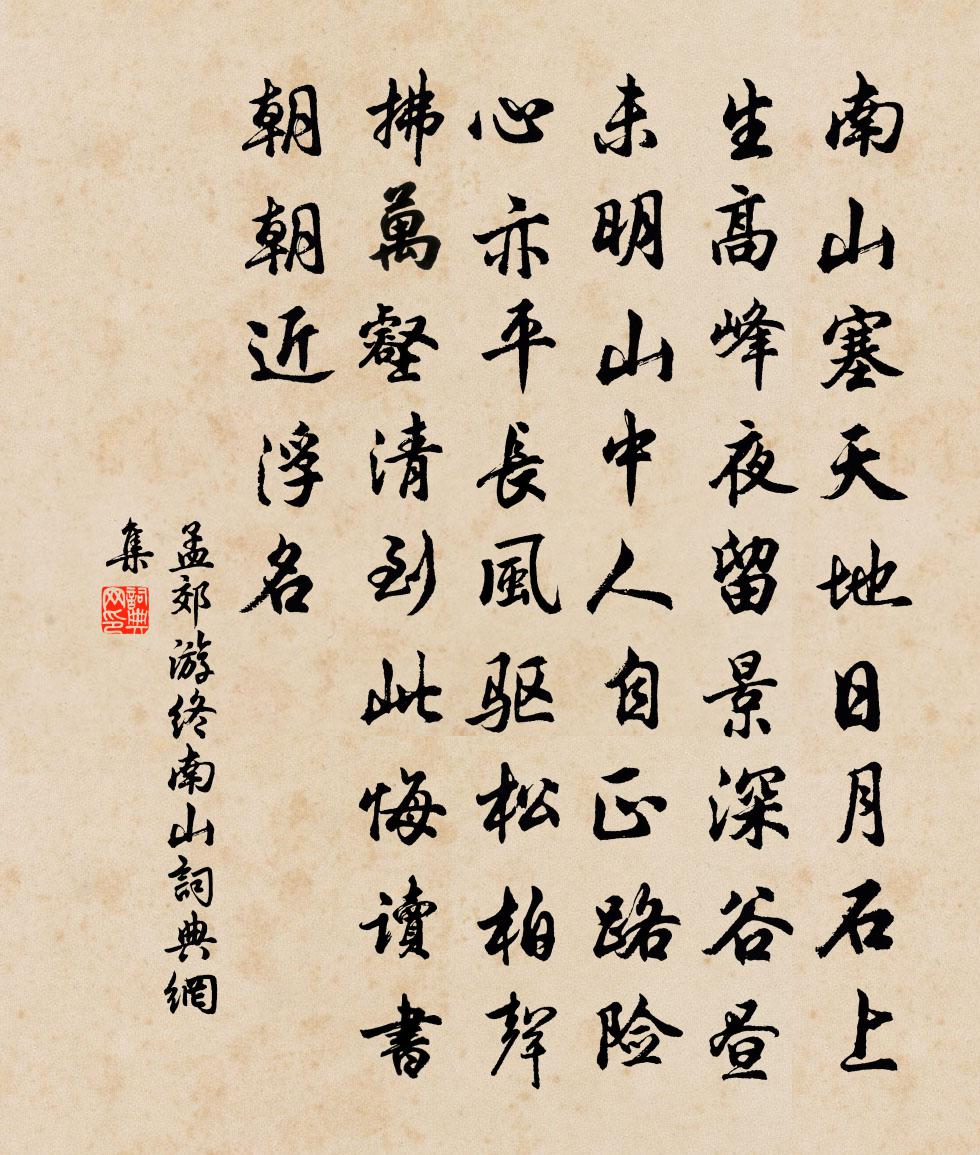 南山塞天地日月石上
生高峰夜留景深谷昼
未明山中人自正路险
心亦平長風驱松柏聲
拂萬壑清到此悔读書
朝朝近浮名
孟郊游终南山詞典網
集
詞典
网印